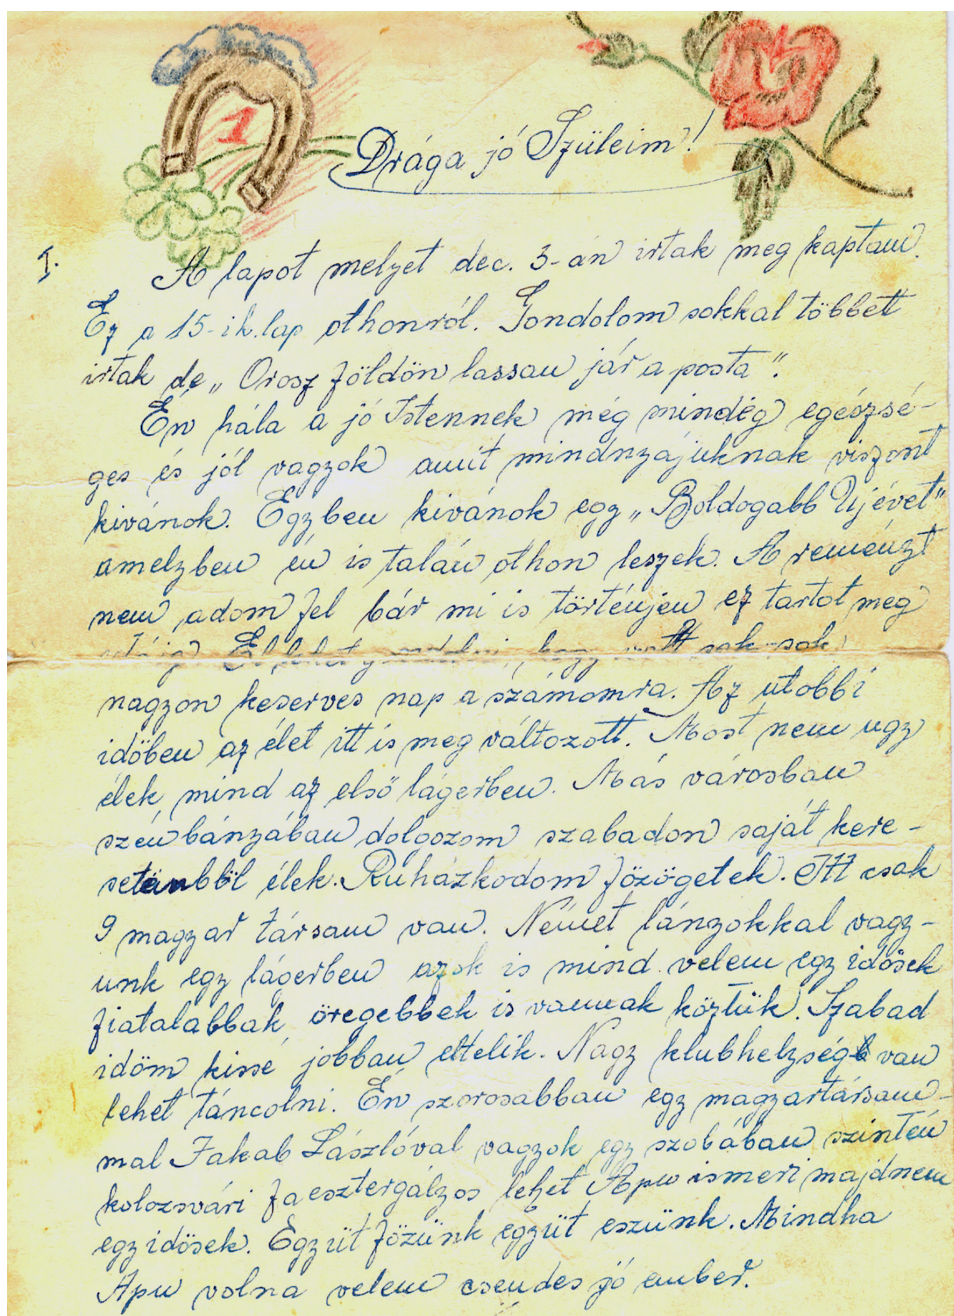 1
Drága jó Szüleim!
I.
A lapot melyet dec. 3-án irtak meg kaptam.
Ez a 15-ik. lap othonról. Gondolom sokkal többet
irtak de „Orosz földön lassan jár a posta".
Én hála a jó Istennek még mindég egészsé-
ges és jól vagyok amit mindnyájuknak viszont
kivánok. Egyben kivánok egy „Boldogabb Ujévet"
amelyben én is talán othon leszek. A reményt
nem adom fel bár mi is történjen ez tartot meg
El lehet gondolni, hogy volt sok-sok
nagyon keserves nap a számomra. Az utobbi
időben az élet itt is meg változott. Most nem ugy
élek mind az első lágerben. Más városban
szén bányában dolgozom szabadon saját kere-
setemből élek. Ruházkodom főzögetek. Itt csak
9 magyar társam van. Német lányokkal vagy-
unk egy lágerben azok is mind velem egy idősek
fiatalabbak öregebbek is vannak köztük. Szabad
időm kissé jobban eltelik. Nagy klubhelység van
lehet táncolni. Én szorosabban egy magyartársam-
mal Jakab Lászlóval vagyok egy szobában szintén
kolozsvári faesztergályos lehet Apu ismeri majdnem
egyidősek. Együt főzünk együt eszünk. Mindha
Apu volna velem csendes jó ember.